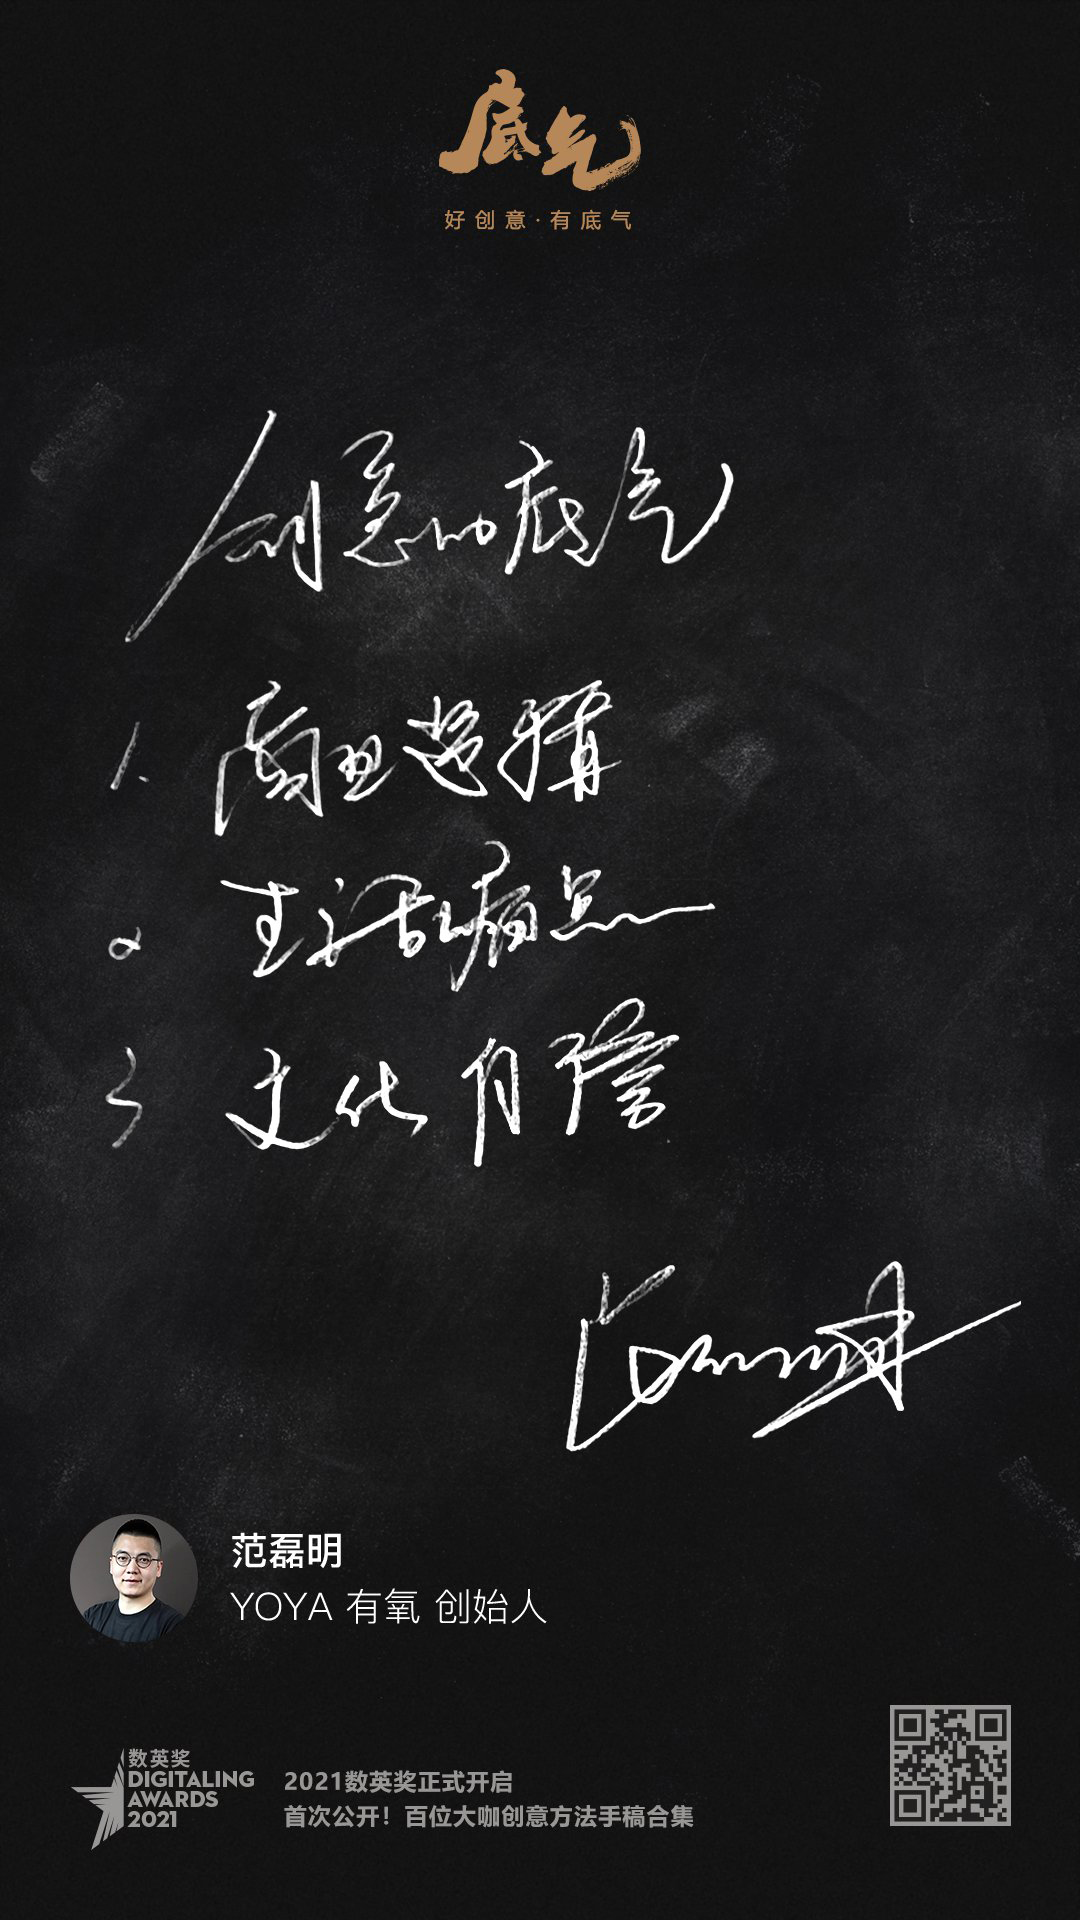 底气
好创意·有底气
创意的底气
1. 商业逻辑
2 生活痛点
3 文化自信
范磊明
YOYA 有氧 创始人
数英奖
DIGITALING
AWARDS
2021
2021数英奖正式开启
首次公开！百位大咖创意方法手稿合集